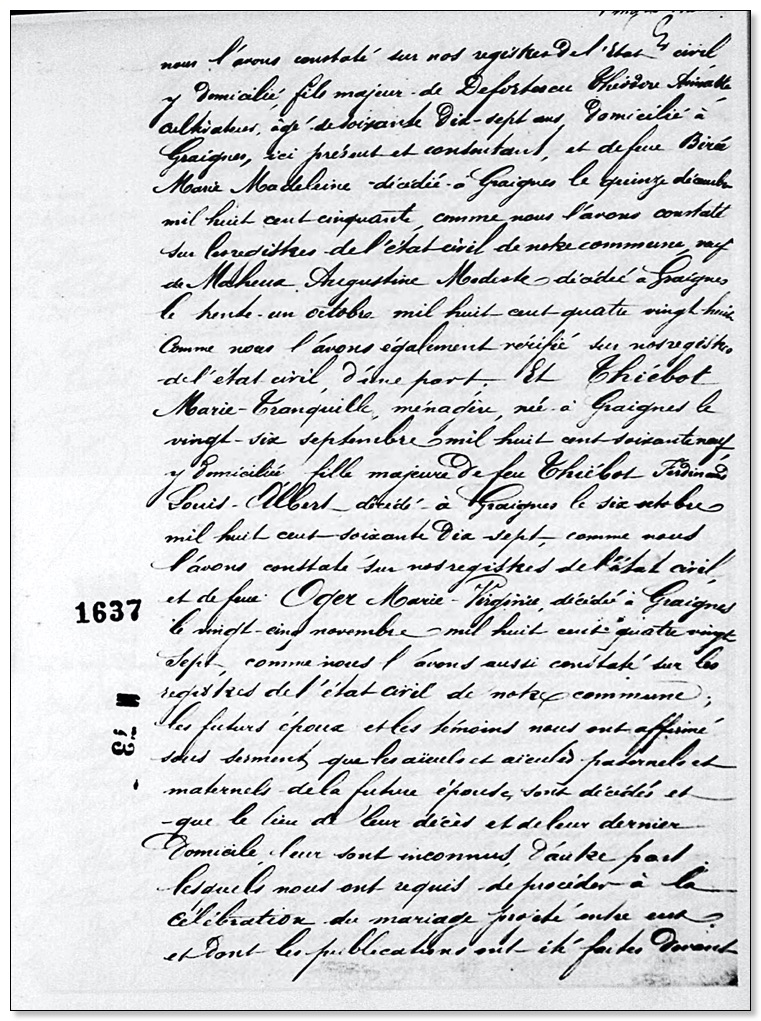 nous l'avons constaté sur nos registres de l'état civil
y domicilié fils majeur de Defortescu Théodore Aimable
cultivateur, âgé de soixante dix-sept ans, domicilié à
Graignes, ici présent et consentant, et de feue Birée
Marie Madeleine décédée à Graignes le quinze décembre
mil huit cent cinquante, comme nous l'avons constaté
sur les registres de l'état civil de notre commune, veuf
de Maheux Augustine Modeste décédée à Graignes
le trente-un octobre mil huit cent quatre vingt huit
comme nous l'avons également vérifié sur nos registres
de l'état civil, d'une part. Et Thiébot
Marie-Tranquille, ménagère, née à Graignes le
vingt-six septembre mil huit cent soixante neuf
y domiciliée fille majeure de feu Thiébot Ferdinand
Louis-Albert décédé à Graignes le six octobre
mil huit cent soixante dix-sept, comme nous
l'avons constaté sur nos registres de l'état civil,
et de feue Oger Marie-Virginie, décédée à Graignes
1637
le vingt-cinq novembre mil huit cent quatre vingt
sept, comme nous l'avons aussi constaté sur les
registres de l'état civil de notre commune;
les futurs époux et les témoins nous ont affirmé
73
sous serment, que les aïeuls et aïeules paternels et
maternels de la future épouse, sont décédés et
-que le lieu de leur décès et de leur dernier
domicile leur sont inconnus, d'autre part.
lesquels nous ont requis de procéder à la
célébration du mariage projeté entre eux
et dont les publications ont été faites devant